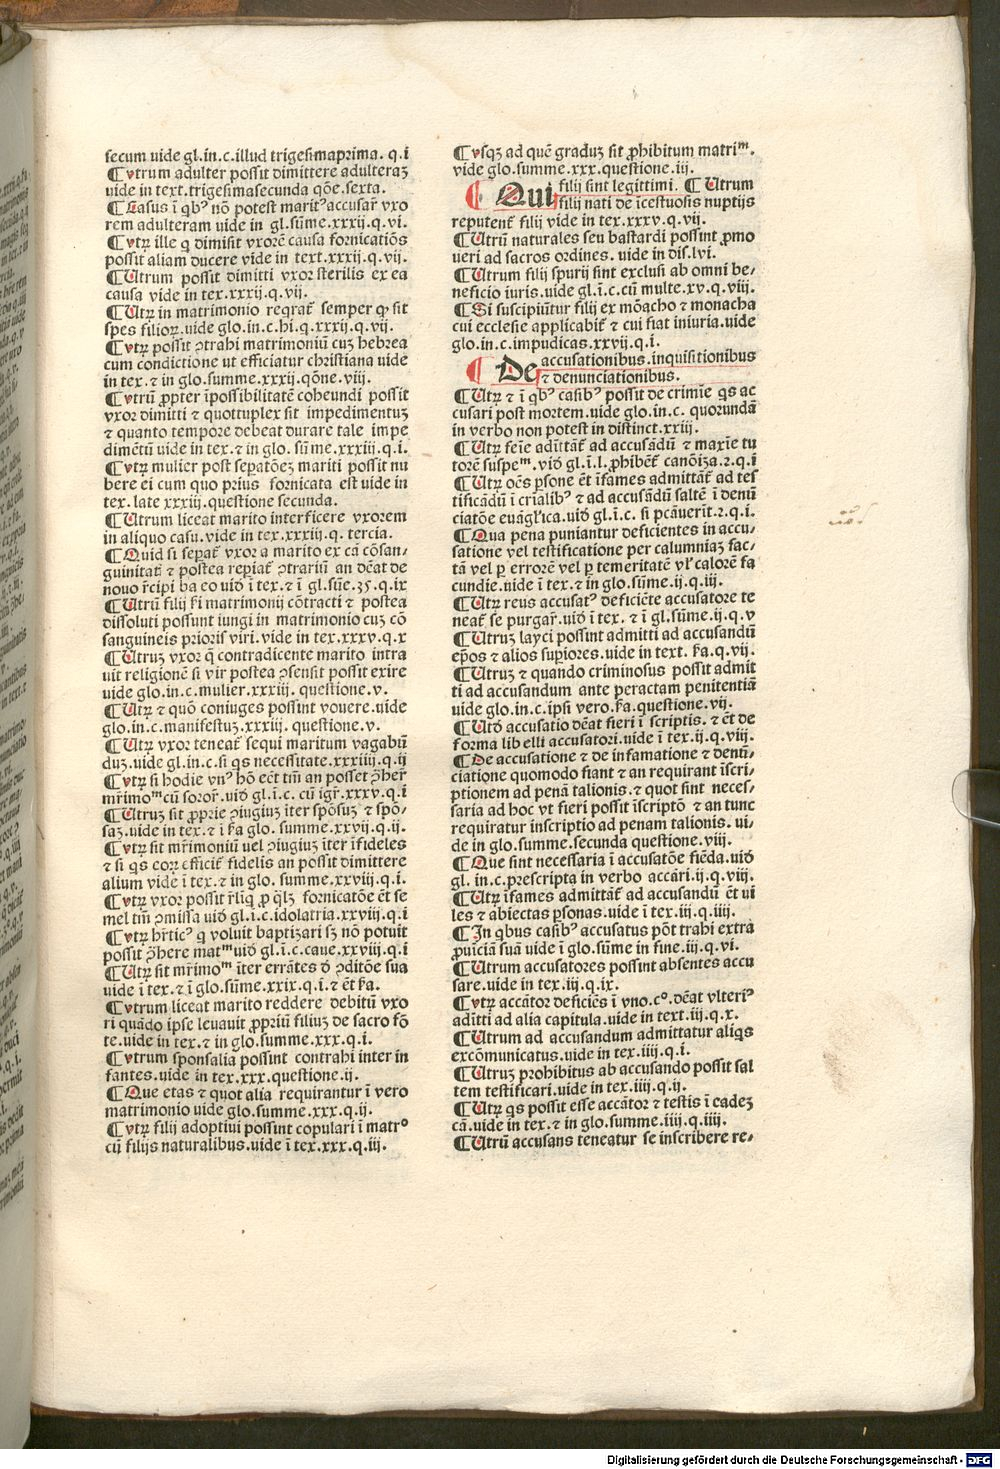 secum uide gl.in.c.illud trigesimaprima. q.i
¶ Vtrum adulter possit dimittere adulteraꝫ
uide in text.trigesimasecunda qōne.sexta.
¶ Casus ī qbꝰ nō potest maritꝰ accusar̄ vxo
rem adulteram uide in gl.sūme.xxxij.q.vi.
¶ Vtꝝ ille q dimisit vxorē causa fornicatiōs
possit aliam ducere vide in text.xxxij.q.vij.
¶ Utrum possit dimitti vxor sterilis ex ea
causa vide in tex.xxxij.q.vij.
¶ Utꝝ in matrimonio reqrat̄ semper ꝙ sit
spes filioꝝ.uide glo.in.c.hi.q.xxxij.q.vij.
¶ Vtꝝ possit ꝯtrahi matrimoniū cuꝫ hebrea
cum condictione ut efficiatur christiana uide
in tex.⁊ in glo.summe.xxxij.qōne.viij.
¶ Vtrū ꝓpter īpossibilitatē coheundi possit
vxor dimitti ⁊ quottuplex sit impedimentuꝫ
⁊ quanto tempore debeat durare tale impe
dimētū uide in tex.⁊ in glo. sūme.xxxiij.q.i.
¶ Vtꝝ mulier post sepatōeꝫ mariti possit nu
bere ei cum quo prius fornicata est uide in
tex. late xxxij.questione secunda.
¶ Utrum liceat marito interficere vxorem
in aliquo casu.vide in tex.xxxiij.q. tercia.
¶ Quid si sepat̄ vxor a marito ex cā cōsan-
guinitat̄ ⁊ postea repiat̄ ꝯtrariū an dēat de
nouo r̄cipi ba eo uiđ ī tex.⁊ ī gl.sūe.35.q.ix
¶ Utrū filij k̄i matrimonij cōtracti ⁊ postea
dissoluti possunt iungi in matrimonio cuꝫ cō
sanguineis prioris viri.vide in tex.xxxv.q.x
¶ Utruꝫ vxor q̄ contradicente marito intra
uit religionē si vir postea ꝯsensit possit exire
uide glo.in.c.mulier.xxxiij. questione.v.
¶ Utꝝ ⁊ quō coniuges possint vouere.uide
glo.in.c.manifestuꝫ.xxxiij. questione.v.
¶ Utꝝ vxor teneat̄ sequi maritum vagabū
duꝫ.uide gl.in.c.si qs necessitate.xxxiiij.q.ij
¶ Vtꝝ si hodie vnꝰ hō eēt tm̄ an posset ꝯ̄her̄
mr̄imoᵐ cū soror̄.uiđ gl.ī.c. cū igr̄.xxxv.q.i
¶ Utruꝫ sit ꝓprie ꝯiugiuꝫ īter spōsuꝫ ⁊ spō-
saꝫ.uide in tex.⁊ ī k̄a glo. summe.xxvij.q.ij.
¶ Vtꝝ sit mr̄imoniū uel ꝯiugiuꝫ īter īfideles
⁊ si qs coꝝ efficit̄ fidelis an possit dimittere
alium vide ī tex.⁊ in glo. summe.xxviij.q.i.
¶ Vtꝝ vxor possit r̄liq̄ ꝓ qlꝫ fornicatōe ēt se
mel tm̄ ꝯmissa uiđ gl.ī.c.idolatria.xxviij.q.i
¶ Vtꝝ hr̄ticꝰ q voluit baptizari sꝫ nō potuit
possit ꝯ̄here matᵐ uiđ gl.ī.c.caue.xxviij.q.i
¶ Utꝝ sit mr̄imoᵐ īter errātes đ ꝯditōe sua
uide ī tex.⁊ ī glo.sūme.xxix.q.i.⁊ ēt k̄a.
¶ Vtrum liceat marito reddere debitū vxo
ri quādo ipse leuauit ꝓpriū filiuꝫ de sacro fō
te.uide in tex.⁊ in glo.summe.xxx.q.i.
¶ Vtrum sponsalia possint contrahi inter in
fantes.uide in tex.xxx.questione.ij.
¶ Que etas ⁊ quot alia requirantur ī vero
matrimonio uide glo.summe.xxx.q.ij.
¶ Vtꝝ filij adoptiui possint copulari ī matrᵒ
cū filijs naturalibus.uide ī tex.xxx.q.iij.
¶ Vsqꝫ ad quē graduꝫ sit ꝓhibitum matriᵐ.
vide glo.summe.xxx.questione.iij.
¶ Qui filij sint legittimi. ¶ Utrum
filij nati de īcestuosis nuptijs
reputent̄ filij vide in tex.xxxv.q.vij.
¶ Utrū naturales seu bastardi possint ꝓmo
ueri ad sacros ordines. uide in dis.lvi.
¶ Utrum filij spurij sint exclusi ab omni be-
neficio iuris.uide gl.ī.c.cū multe.xv.q.viij.
¶ Si suscipiūtur filij ex mōacho ⁊ monacha
cui ecclesie applicabit̄ ⁊ cui fiat iniuria.uide
glo.in.c.impudicas.xxvij.q.i.
¶ De accusationibus.inquisitionibus
⁊ denunciationibus.
¶ Utꝝ ⁊ ī qbꝰ casibꝰ possit de crimīe qs ac
cusari post mortem.uide glo.in.c. quorundā
in verbo non potest in distinct.xxiij.
¶ Utꝝ feīe adīttāt̄ ad accusādū ⁊ maxīe tu
torē suspeᵐ.viđ gl.ī.l.ꝓhibēt̄ canōiꝫa.2.q.i
¶ Utꝝ oēs ꝑsone ēt īfames admittāt̄ ad tes
tificādū ī crīalibꝰ ⁊ ad accusādū saltē ī denū
ciatōe euāgl̄ica.uiđ gl.ī.c. si pcāuerīt.2.q.i
¶ Qua pena puniantur deficientes in accu-
satione vel testificatione per calumniaꝫ fac-
tā vel ꝑ errorē vel ꝑ temeritatē vl̄ calorē fa
cundie.uide ī tex.⁊ in glo.sūme.ij.q.iij.
¶ Utꝝ reus accusatꝰ deficiēte accusatore te
neat̄ se purgar̄.uiđ ī tex. ⁊ ī gl.sūme.ij.q.v
¶ Utruꝫ layci possint admitti ad accusandū
ep̄os ⁊ alios supiores.uide in text. k̄a.q.vij.
¶ Utruꝫ ⁊ quando criminosus possit admit
ti ad accusandum ante peractam penitentiā
uide glo.in.c.ipsi vero.k̄a.questione.vij.
¶ Utđ accusatio dēat fieri ī scriptis.⁊ ēt de
forma lib elli accusatori.uide ī tex.ij.q.viij.
¶ De accusatione ⁊ de infamatione ⁊ denū-
ciatione quomodo fiant ⁊ an requirant īscri-
ptionem ad penā talionis.⁊ quot sint neces-
saria ad hoc vt fieri possit īscriptō ⁊ an tunc
requiratur inscriptio ad penam talionis. ui-
de in glo.summe.secunda questione.viij.
¶ Que sint necessaria ī accusatōe fiēda.uiđ
gl. in.c.prescripta in verbo accāri.ij.q.viij.
¶ Utꝝ īfames admittāt̄ ad accusandū ēt ui
les ⁊ abiectas ꝑsonas.uide ī tex.iij.q.iiij.
¶ In qbus casibꝰ accusatus pōt trahi extra
ꝓuīciā suā uide ī glo.sūme in fine.iij.q.vi.
¶ Utrum accusatores possint absentes accu
sare.uide in tex.iij.q.ix.
¶ Vtꝝ accātor deficiēs ī vno.cᵒ.dēat vlteriꝰ
adītti ad alia capitula.uide in text.iij.q.x.
¶ Utrum ad accusandum admittatur aliqs
excōmunicatus.uide in tex.iiij.q.i.
¶ Utruꝫ prohibitus ab accusando possit sal
tem testificari.uide in tex.iiij.q.ij.
¶ Utꝝ qs possit esse accātor ⁊ testis ī cadeꝫ
cā.uide in tex.⁊ in glo.summe.iiij.q.iiij.
¶ Utrū accusans teneatur se inscribere re-
Digitalisierung gefördert durch die Deutsche Forschungsgemeinschaft - DFG